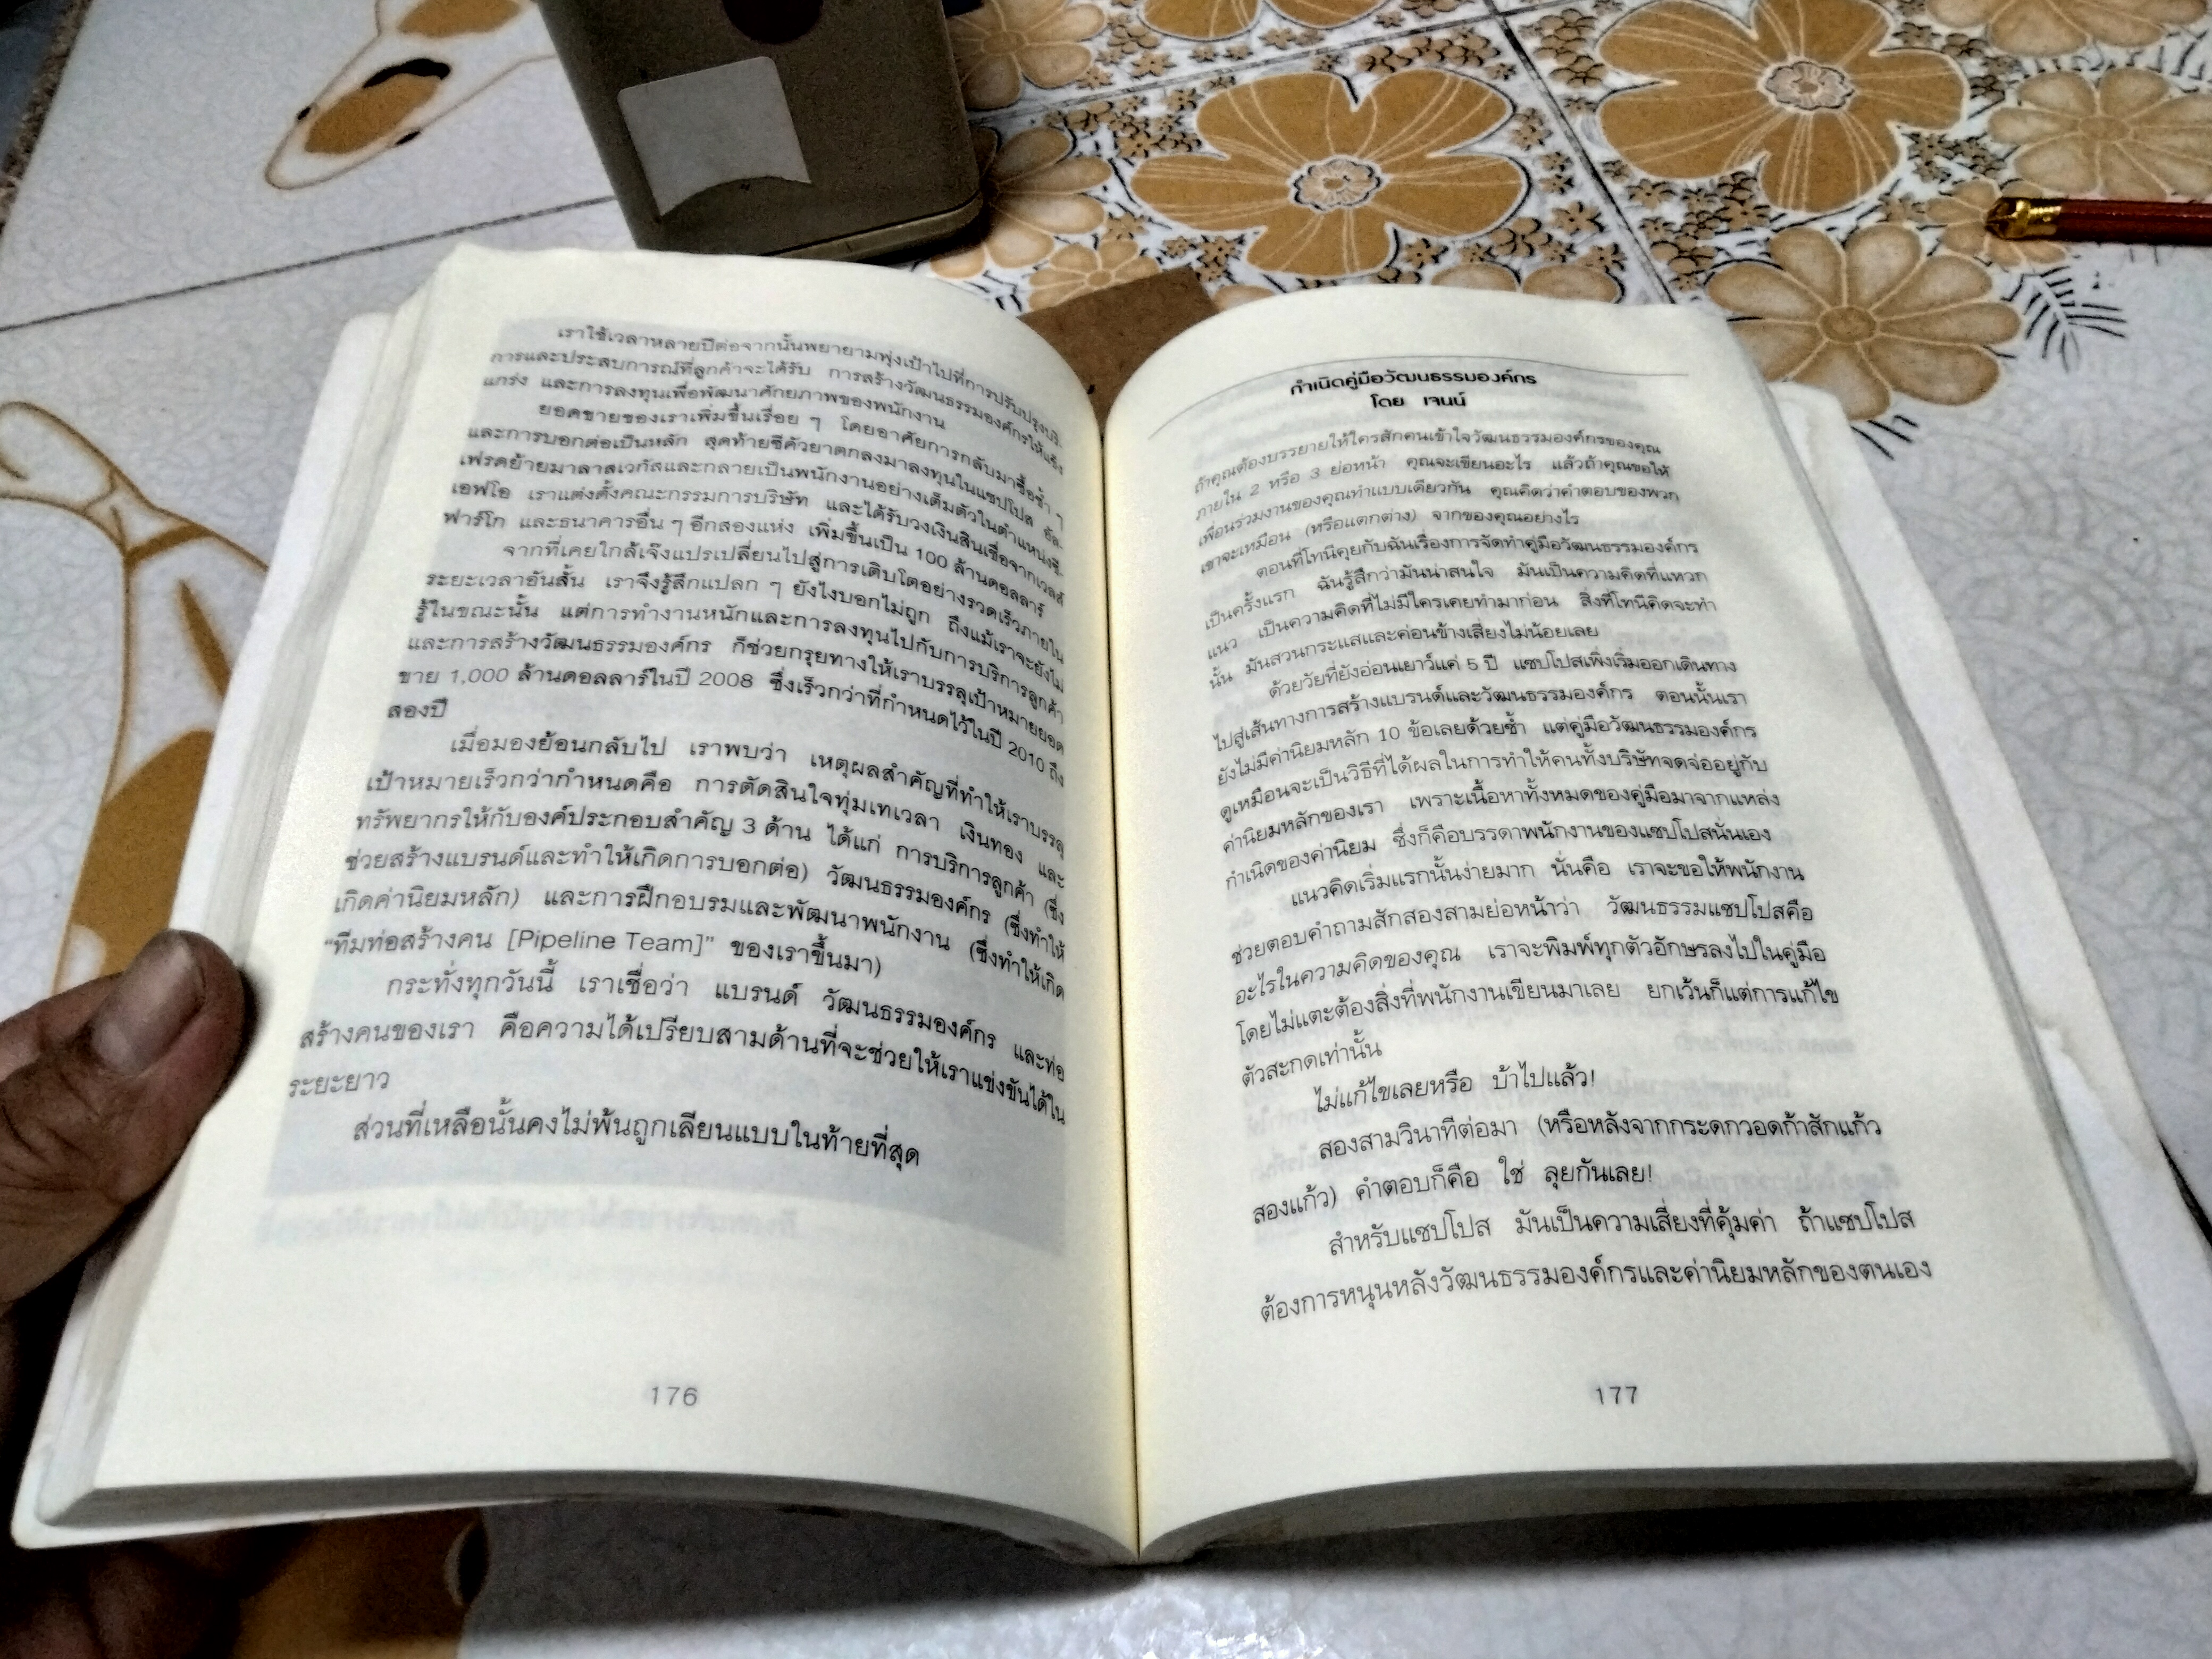 เราใช้เวลาหลายปีต่อจากนั้นพยายามพุ่งเป้าไปที่การปรับปรุงบริ-
การและประสบการณ์ที่ลูกค้าจะได้รับ การสร้างวัฒนธรรมองค์กรให้แข็ง
แกร่ง และการลงทุนเพื่อพัฒนาศักยภาพของพนักงาน
ยอดขายของเราเพิ่มขึ้นเรื่อย ๆ โดยอาศัยการกลับมาซื้อซ้ำ ๆ
และการบอกต่อเป็นหลัก สุดท้ายซีคัวยาตกลงมาลงทุนในแซปโปส อัล-
เฟรดย้ายมาลาสเวกัสและกลายเป็นพนักงานอย่างเต็มตัวในตำแหน่งซี-
เอฟโอ เราแต่งตั้งคณะกรรมการบริษัท และได้รับวงเงินสินเชื่อจากเวลส์
ฟาร์โก และธนาคารอื่น ๆ อีกสองแห่ง เพิ่มขึ้นเป็น 100 ล้านดอลลาร์
จากที่เคยใกล้เจ๊งแปรเปลี่ยนไปสู่การเติบโตอย่างรวดเร็วภายใน
ระยะเวลาอันสั้น เราจึงรู้สึกแปลก ๆ ยังไงบอกไม่ถูก ถึงแม้เราจะยังไม่
รู้ในขณะนั้น แต่การทำงานหนักและการลงทุนไปกับการบริการลูกค้า
และการสร้างวัฒนธรรมองค์กร ก็ช่วยกรุยทางให้เราบรรลุเป้าหมายยอด
ขาย 1,000 ล้านดอลลาร์ในปี 2008 ซึ่งเร็วกว่าที่กำหนดไว้ในปี 2010 ถึง
สองปี
เมื่อมองย้อนกลับไป เราพบว่า เหตุผลสำคัญที่ทำให้เราบรรลุ
เป้าหมายเร็วกว่ากำหนดคือ การตัดสินใจทุ่มเทเวลา เงินทอง และ
ทรัพยากรให้กับองค์ประกอบสำคัญ 3 ด้าน ได้แก่ การบริการลูกค้า (ซึ่ง
ช่วยสร้างแบรนด์และทำให้เกิดการบอกต่อ) วัฒนธรรมองค์กร (ซึ่งทำให้
เกิดค่านิยมหลัก) และการฝึกอบรมและพัฒนาพนักงาน (ซึ่งทำให้เกิด
“ทีมท่อสร้างคน [Pipeline Team]” ของเราขึ้นมา)
กระทั่งทุกวันนี้ เราเชื่อว่า แบรนด์ วัฒนธรรมองค์กร และท่อ
สร้างคนของเรา คือความได้เปรียบสามด้านที่จะช่วยให้เราแข่งขันได้ใน
ระยะยาว
ส่วนที่เหลือนั้นคงไม่พ้นถูกเลียนแบบในท้ายที่สุด
176
กำเนิดคู่มือวัฒนธรรมองค์กร
โดย เจนน์
ถ้าคุณต้องบรรยายให้ใครสักคนเข้าใจวัฒนธรรมองค์กรของคุณ
ภายใน 2 หรือ 3 ย่อหน้า คุณจะเขียนอะไร แล้วถ้าคุณขอให้
เพื่อนร่วมงานของคุณทำแบบเดียวกัน คุณคิดว่าคำตอบของพวก
เขาจะเหมือน (หรือแตกต่าง) จากของคุณอย่างไร
ตอนที่โทนีคุยกับฉันเรื่องการจัดทำคู่มือวัฒนธรรมองค์กร
เป็นครั้งแรก ฉันรู้สึกว่ามันน่าสนใจ มันเป็นความคิดที่แหวก
แนว เป็นความคิดที่ไม่มีใครเคยทำมาก่อน สิ่งที่โทนีคิดจะทำ
นั้น มันสวนกระแสและค่อนข้างเสี่ยงไม่น้อยเลย
ด้วยวัยที่ยังอ่อนเยาว์แค่ 5 ปี แซปโปสเพิ่งเริ่มออกเดินทาง
ไปสู่เส้นทางการสร้างแบรนด์และวัฒนธรรมองค์กร ตอนนั้นเรา
ยังไม่มีค่านิยมหลัก 10 ข้อเลยด้วยซ้ำ แต่คู่มือวัฒนธรรมองค์กร
ดูเหมือนจะเป็นวิธีที่ได้ผลในการทำให้คนทั้งบริษัทจดจ่ออยู่กับ
ค่านิยมหลักของเรา เพราะเนื้อหาทั้งหมดของคู่มือมาจากแหล่ง
กำเนิดของค่านิยม ซึ่งก็คือบรรดาพนักงานของแซปโปสนั่นเอง
แนวคิดเริ่มแรกนั้นง่ายมาก นั่นคือ เราจะขอให้พนักงาน
ช่วยตอบคำถามสักสองสามย่อหน้าว่า วัฒนธรรมแซปโปสคือ
อะไรในความคิดของคุณ เราจะพิมพ์ทุกตัวอักษรลงไปในคู่มือ
โดยไม่แตะต้องสิ่งที่พนักงานเขียนมาเลย ยกเว้นก็แต่การแก้ไข
ตัวสะกดเท่านั้น
ไม่แก้ไขเลยหรือ บ้าไปแล้ว!
สองสามวินาทีต่อมา (หรือหลังจากกระดกวอดก้าสักแก้ว
สองแก้ว) คำตอบก็คือ ใช่ ลุยกันเลย!
สำหรับแซปโปส มันเป็นความเสี่ยงที่คุ้มค่า ถ้าแซปโปส
ต้องการหนุนหลังวัฒนธรรมองค์กรและค่านิยมหลักของตนเอง
177